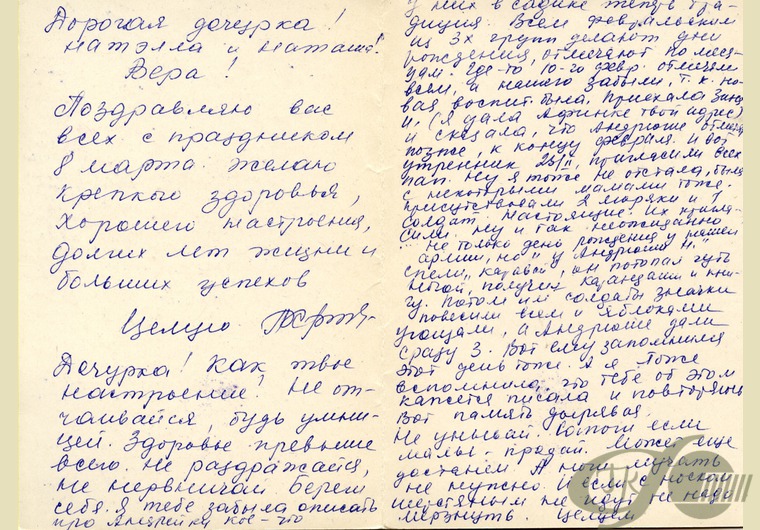 Дорогая дочурка!
Натэлла и Наташа!
Вера!
Поздравляю вас
всех с праздником
8 марта. желаю
крепкого здоровья,
хорошего настроения,
долгих лет жизни и
больших успехов
Целую
Дочурка! Как твое
настроение! Не от-
чаивайся, будь умни-
цей. Здоровье превыше
всего. Не раздражайся,
не нервничай береги
себя. Я тебе забыла описать
про Андрейка кое-что
у них в садике теперь тра-
диция. Всем февральским
из 3х групп делают дни
рождения, отмечают по меся-
цам. Где-то 10-го февр. отмечали
всем, а нашего забыли, т.к. но-
вая воспит. была. Приехала
и, (я дала твой адрес)
и сказала, что Андрюше отметят
позже, к концу февраля. И вот
утренник 23/II, пригласили всех
пап. Ну я тоже не отстала, была
с некоторыми мамами тоже.
Присутствовали 2 моряки и 1
солдат настоящие. Их пригла-
сили. Ну и так неожиданно
"Не только день рождения у нашей
армии, но и у Андрюши Н."
спели, каравай, он потопал чуть
ногой, получил карандаши и кни-
гу. Потом им солдаты значки
повесили всем и яблоками
угощали, а Андрюше дали
сразу 3. Вот ему запомнился
этот день тоже. А я тоже
вспомнила, что тебе об этом
кажется писала и повторяюсь
Вот память дырявая.
Не унывай. Сапоги если
малы - продай. Может еще
достанем. А ноги мучать
не нужно. И если с носком
шерстяным не идут не надо
мерзнуть. Целуем